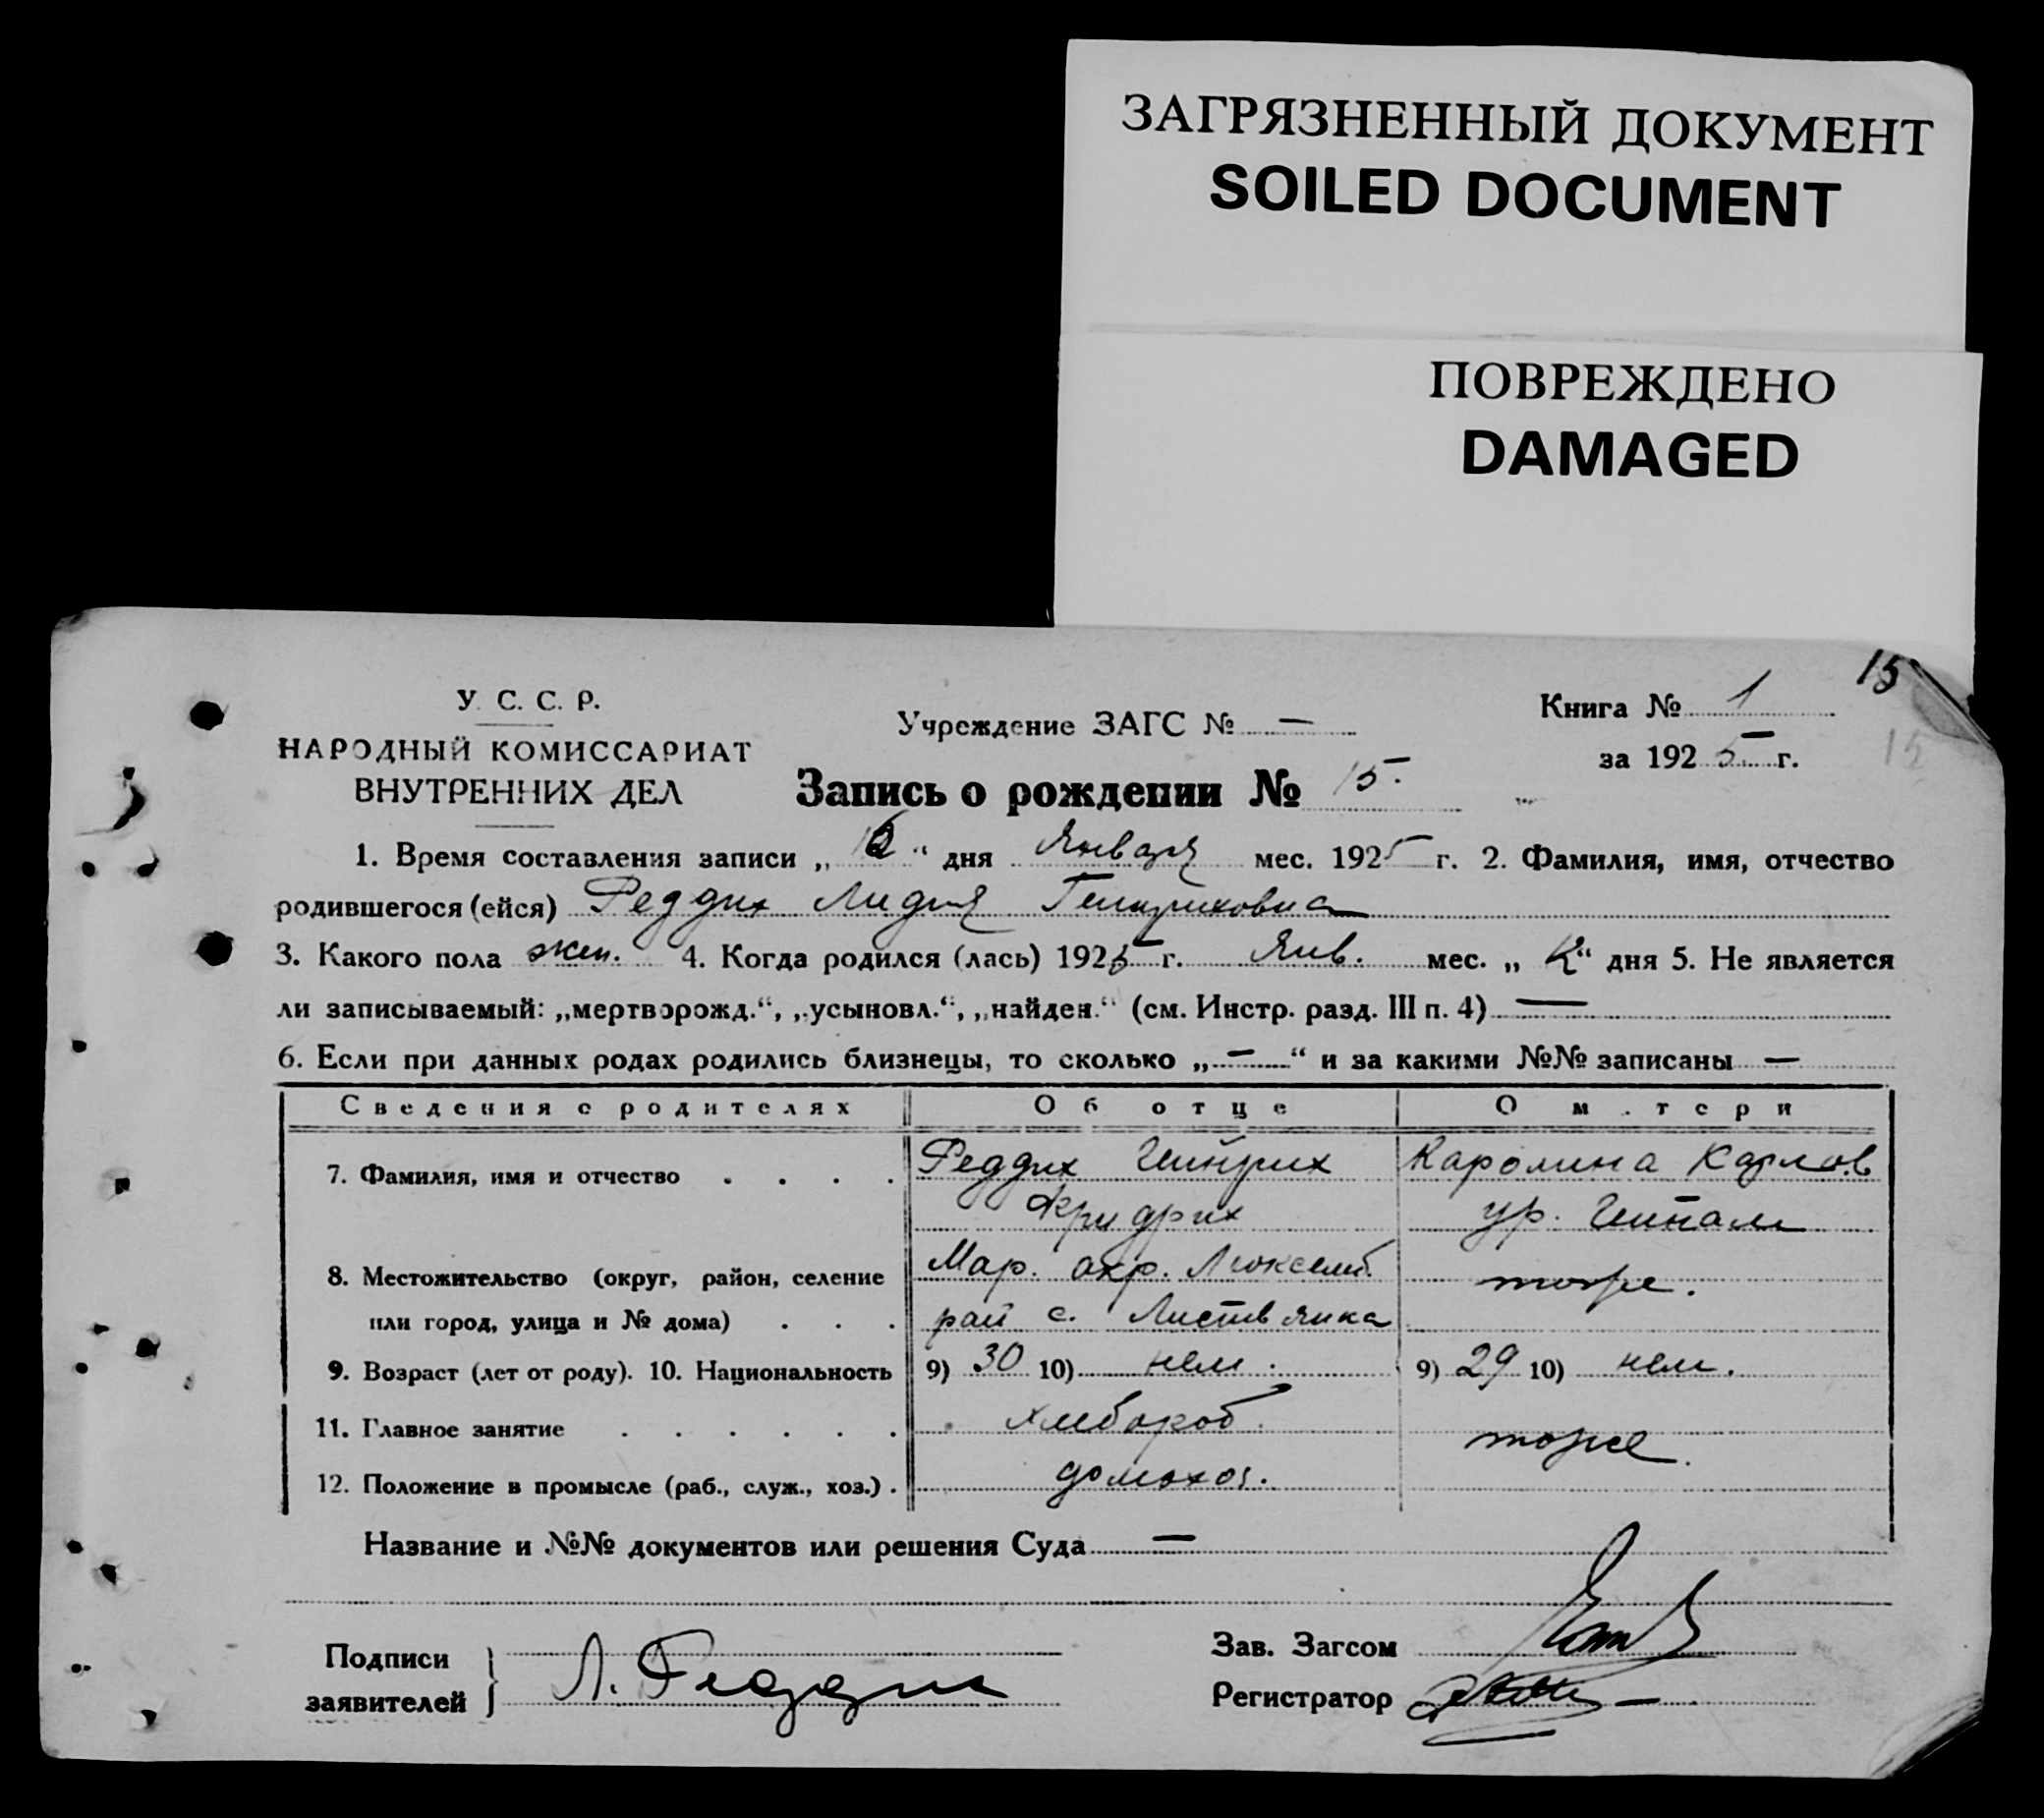 ЗАГРЯЗНЕННЫЙ ДОКУМЕНТ
SOILED DOCUMENT
ПОВРЕЖДЕНО
DAMAGED
15
У. С. С. Р.
НАРОДНЫЙ КОМИССАРИАТ
ВНУТРЕННИХ ДЕЛ
Учреждение ЗАГС № —
Книга № 1
за 1925 г.
15
Запись о рождении № 15.
1. Время составления записи „ “ дня Января мес. 1925 г. 2. Фамилия, имя, отчество
родившегося (ейся) Реддих Лидия Гейнриховна
3. Какого пола жен. 4. Когда родился (лась) 1925 г. Янв. мес. „ “ дня 5. Не является
ли записываемый: „мертворожд.“, „усыновл.“, „найден.“ (см. Инстр. разд. III п. 4) —
6. Если при данных родах родились близнецы, то сколько „—“ и за какими №№ записаны —
Сведения о родителях Об отце О м.тери
7. Фамилия, имя и отчество . . . . Реддих Гейнрих Каролина Карлов.
Фридрих ур.
8. Местожительство (округ, район, селение Мар. окр. Люксемб. тоже.
или город, улица и № дома) . . . рай с. Листвянка
9. Возраст (лет от роду). 10. Национальность 9) 30 10) нем. 9) 29 10) нем.
11. Главное занятие . . . . . . хлебороб. тоже.
12. Положение в промысле (раб., служ., хоз.) . домохоз.
Название и №№ документов или решения Суда —
Подписи
заявителей } Л. Реддих
Зав. Загсом
Регистратор